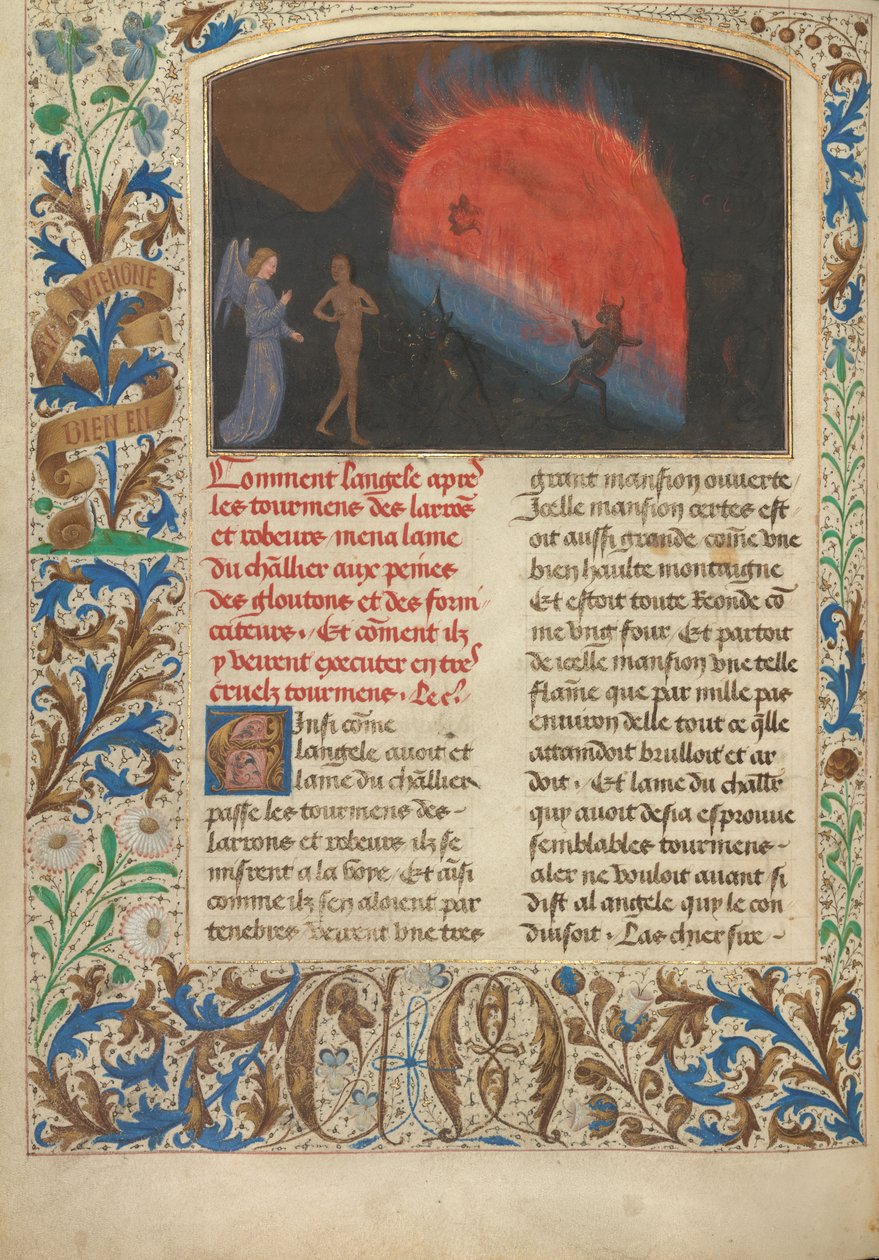 BIEN EN
Comment langele apres
les tourmens des larrōs
et robeurs mena lame
du chlłier aux peines
des gloutons et des forni
cateurs. Et cōment ilz
y veirent executer en tres
cruelz tourmens. Le cl.
Ainsi cōme
langele avoit et
lame du chlłier
passe les tourmens des
larrons et robeurs ilz se
misrent a la voye / Et aīsi
comme ilz sen aloient par
tenebres veirent vne tres
grant mansion ouverte /
Icelle mansion certes est
oit aussi grande cōme vne
bien haulte montaigne
Et estoit toute Reonde cō
me vng four / Et partoit
de icelle mansion vne telle
flāme que par mille pas
enuiron delle tout ce q̄lle
attaindoit brulloit et ar
doit. Et lame du chlłr
quy auoit desia esprouue
semblables tourmens
aler ne vouloit auant / si
dist al angele quy le con
duisoit. Las chier sire
C M